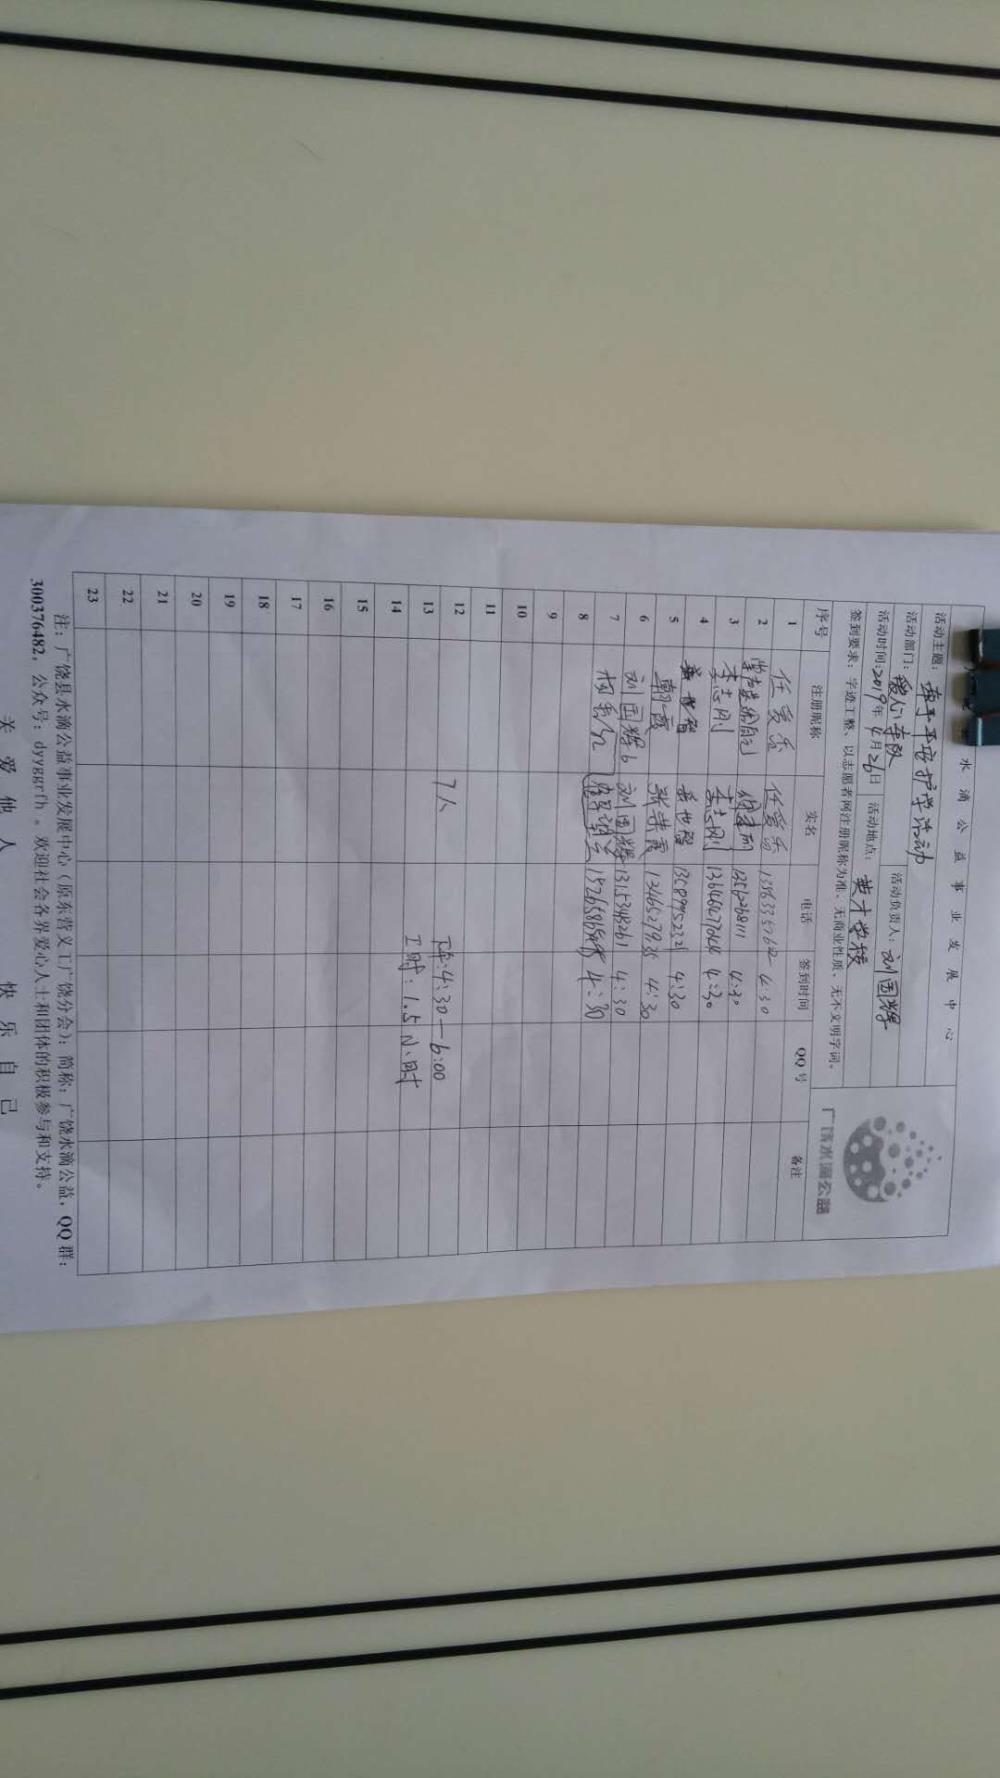 水滴公益事业发展中心
活动主题：牵手平安护学活动
活动部门：爱心车队 活动负责人：刘国辉
活动时间：2019年4月26日 活动地点：英才学校
签到要求：字迹工整、以志愿者网注册昵称为准、无商业性质、无不文明字词。
广饶水滴公益
序号 注册昵称 实名 电话 签到时间 QQ号 备注
1 任爱乐 任爱乐 4:30
2 4:30
3 李志刚 李志刚 4:30
4 4:30
5 朝霞 4:30
6 刘国辉6 刘国辉 4:30
7 4:30
8
9
10
11
12 7人 下午:4:30—6:00
13 工时:1.5小时
14
15
16
17
18
19
20
21
22
23
注：广饶县水滴公益事业发展中心（原东营义工广饶分会）；简称：广饶水滴公益，QQ群：
300376482，公众号：dyyggrfh。欢迎社会各界爱心人士和团体的积极参与和支持。
关爱他人 快乐自己